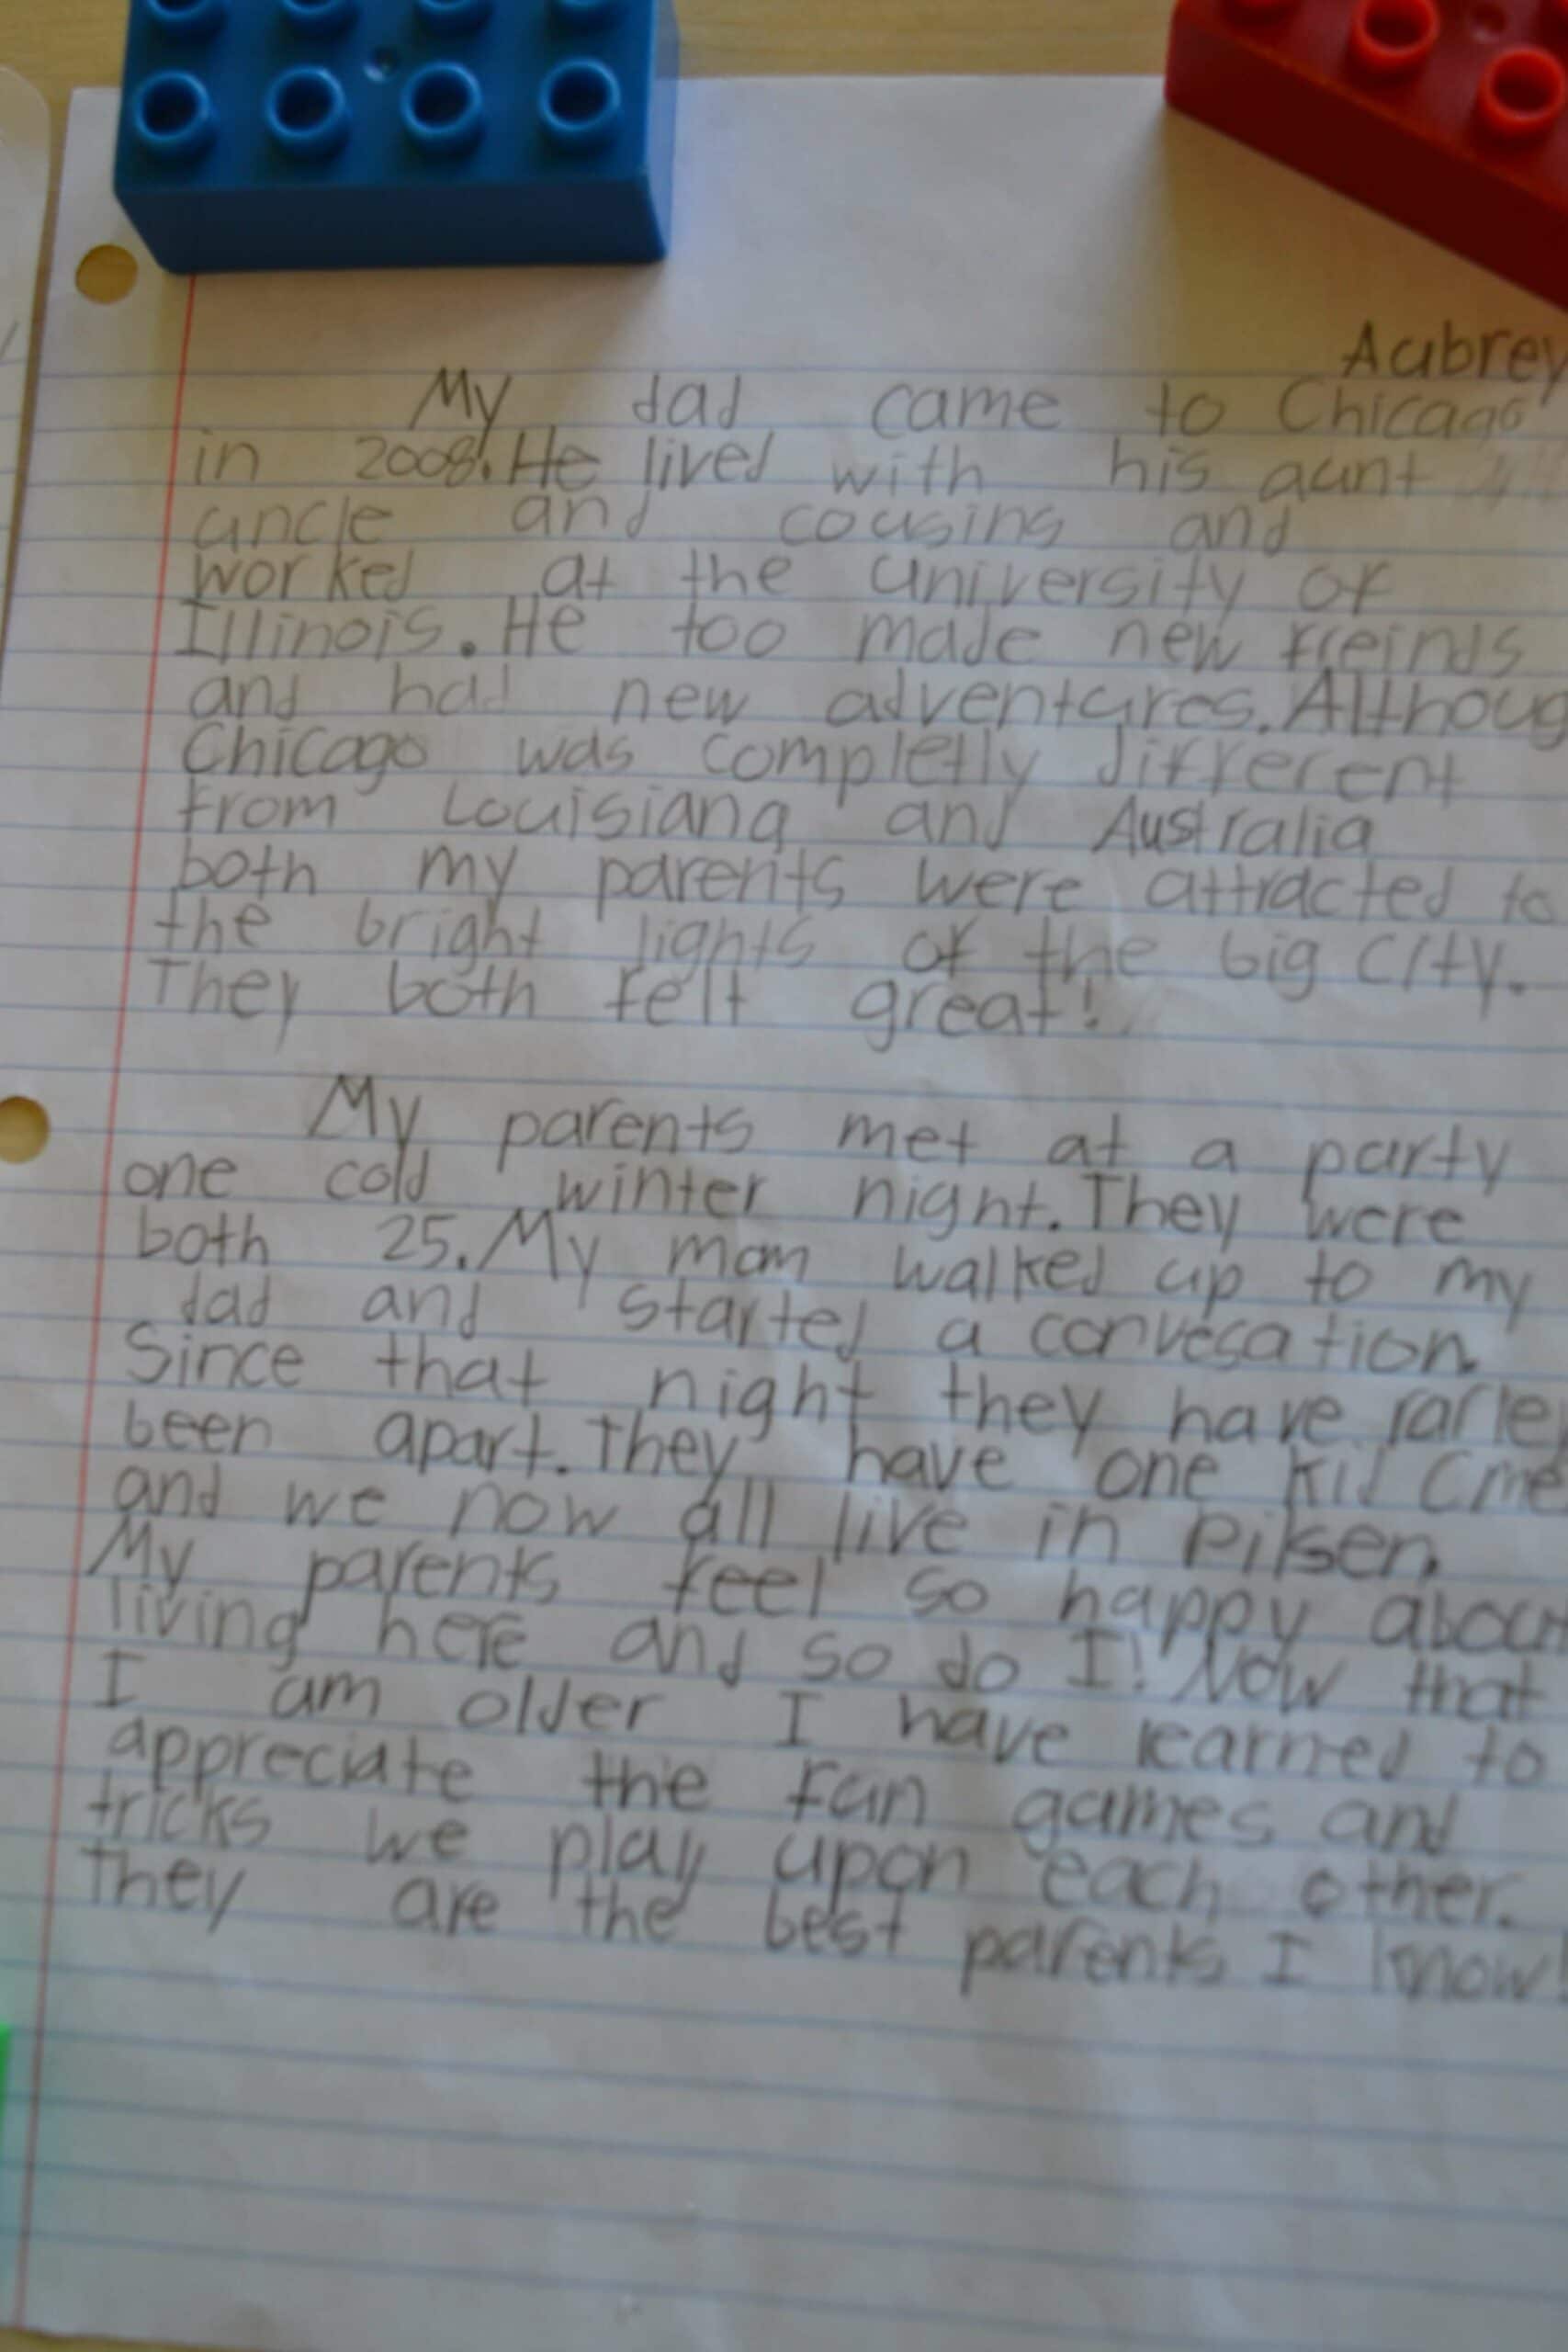 Aubrey
My dad came to Chicago
in 2008. He lived with his aunt
uncle and cousins and
worked at the university of
Illinois. He too made new freinds
and had new adventures. Althoug
Chicago was completly different
from Louisiana and Australia
both my parents were attracted to
the bright lights of the big city.
They both felt great!
My parents met at a party
one cold winter night. They were
both 25. My mom walked up to my
dad and started a convesation.
Since that night they have rarley
been apart. They have one kid (me
and we now all live in Pilsen.
My parents feel so happy about
living here and so do I! Now that
I am older I have learned to
appreciate the fun games and
tricks we play upon each other.
They are the best parents I know!